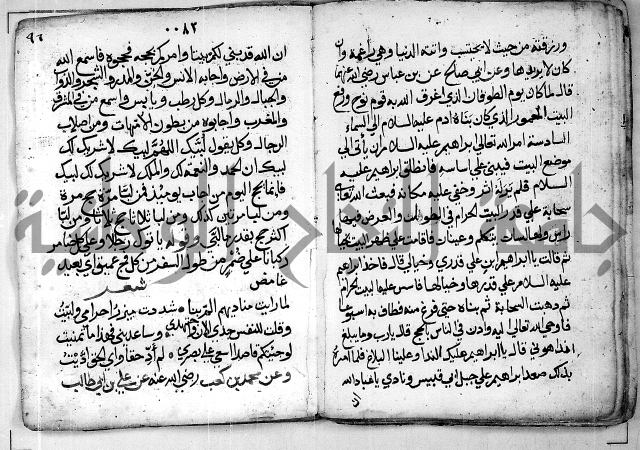 ورزقته من حيث لا يحتسب واتته الدنيا وهي راغمة وان
كان لا يريدها وعن ابي صالح عن بن عباس رضي الله عنهما
قال لما كان يوم الطوفان الذي اغرق الله به قوم نوح رفع
البيت المعمور الذي كان بناه ادم عليه السلام الي السماء
السادسة امر الله تعالي ابراهيم عليه السلام ان يأتي الي
موضع البيت فيبني علي اساسه فانطلق ابراهيم عليه
السلام فلم ير له اثر وخفي عليه مكانه فبعث الله تعالي
سحابة علي قدر البيت الحرام في الطول والعرض فيها
راس ولها لسان يتكلم وعينان فقامت علي ظهر البيت بحيالها
ثم قالت يا ابراهيم ابن علي قدري وحيالي قال فاخذ ابراهيم
عليه السلام علي قدرها وحيالها فاسس عليها البيت الحرام
ثم ذهبت السحابة ثم بناه حتي فرغ منه فطاف به اسبوعا
فاوحي الله تعالي اليه واذن في الناس بالحج قال يارب وما يبلغ
اذاهوتي قال يا ابراهيم عليك الندا وعلينا البلاغ فلما امره
بذلك صعد ابراهيم علي جبل ابي قبيس ونادي يا عباد الله
ان
٠٠٨٢
٩٦
ان الله قد بني لكم بيتا وامركم بحجه فحجوه فاسمع الله
من في الارض واجابه الانس والجن والمدر والشجر والدواب
والجبال والرمال وكل رطب ويابس واسمع من في المشرق
والمغرب واجابوه من بطون الامهات ومن اصلاب
الرجال وكل يقول لبيك اللهم لبيك لا شريك لك
لبيك ان الحمد والنعمة لك والملك لا شريك لك لبيك
فانما يحج اليوم من اجاب يوميذ فمن لبا مرة حج مرة
ومن لبا مرتين كذلك ومن لبا ثلاثا حج ثلاثا ومن لبا
اكثر حج بقدر ما لبي وقوله ياتوك رجالا وعلي كل ضامر
ركبانا علي ضمر من طول السفر من كل فج عميق اي بعيد
غامض شعر
لما رايت مناديهم الم بنا شددت ميزر احرامي ولبيت
وقلت للنفس جدي الان واجتهدي وساعديني فهذا ما تمنيت
لو جئتكم قاصدا اسعي علي بصري لم أؤد حقا واي الحق اديت
وعن محمد بن كعب رضي الله عنه عن علي بن ابي طالب
جامعة النجاح الوطنية